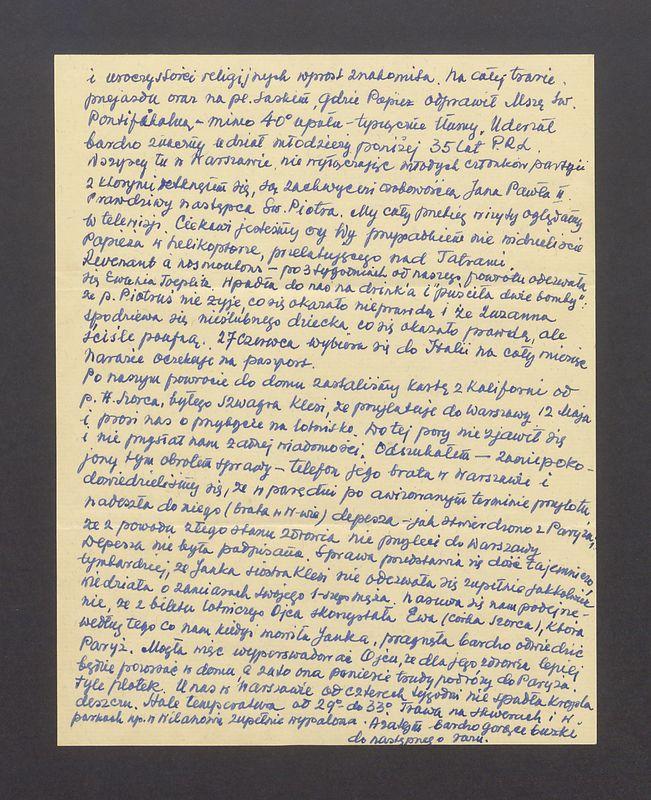 i uroczystości religijnych wprost znakomita. Na całej trasie
przejazdu oraz na pl. Saskim, gdzie Papież odprawił Mszę Św.
Pontyfikalną - mimo 40° upału - tysięczne tłumy. Uderzał
bardzo znaczny udział młodzieży poniżej 35 lat P.R.L.
Wszyscy tu w Warszawie, nie wyłączając młodych członków partyji
z którymi zetknąłem się, są zachwyceni osobowością Jana Pawła II.
Prawdziwy następca Św. Piotra. My cały przebieg wizyty oglądamy
w telewizji. Ciekawi jesteśmy czy Wy przypadkiem nie widzieliście
Papieża w helikopterze, przelatującego nad Tatrami.
Revenant à nos moutons - po 3 tygodniach od naszego powrotu odezwała
się Ewelina Toeplitz. Wpadła do nas na drink'a i "puściła dwie bomby":
że p. Piotruś nie żyje, co się okazało nieprawdą i że Zuzanna
spodziewa się nieślubnego dziecka, co się okazało prawdą, ale
ściśle poufną. 27 czerwca wybiera się do Italii na cały miesiąc
Narazie oczekuje na paszport.
Po naszym powrocie do domu zastaliśmy kartę z Kaliforni od
p. H. Szorca, byłego szwagra Klesi, że przylatuje do Warszawy 12 maja
i prosi nas o przybycie na lotnisko. Do tej pory nie zjawił się
i nie przysłał nam żadnej wiadomości. Odszukałem - zaniepoko-
jony tym obrotem sprawy - telefon jego brata w Warszawie i
dowiedzieliśmy się, że w parę dni po awizowanym terminie przylotu
nadeszła do niego (brata w W-wie) depesza - jak stwierdzono z Paryża,
że z powodu złego stanu zdrowia nie przyleci do Warszawy
Depesza nie była podpisana. Sprawa przedstawia się dość tajemniczo,
tymbardziej, że Janka siostra Klesi nie odezwała się zupełnie jakkolwiek
wiedziała o zamiarach swojego męża. Nasuwa się nam podejrze-
nie, że z biletu lotniczego Ojca skorzystała Ewa (córka Szorca), która
według tego co nam kiedyś mówiła Janka, pragnęła bardzo odwiedzić
Paryż. Mogła więc wyperswadować Ojcu, że dla jego zdrowia lepiej
będzie pozostać w domu, a za to ona poniesie trudy podróży do Paryża.
Tyle plotek. U nas w Warszawie od czterech tygodni nie spadła kropla
deszczu. Stale temperatura od 29° do 33°. Trawa na skwerach i w
parkach np. w Wilanowie zupełnie wypalona. A zatym - bardzo gorące buzki
do następnego razu.